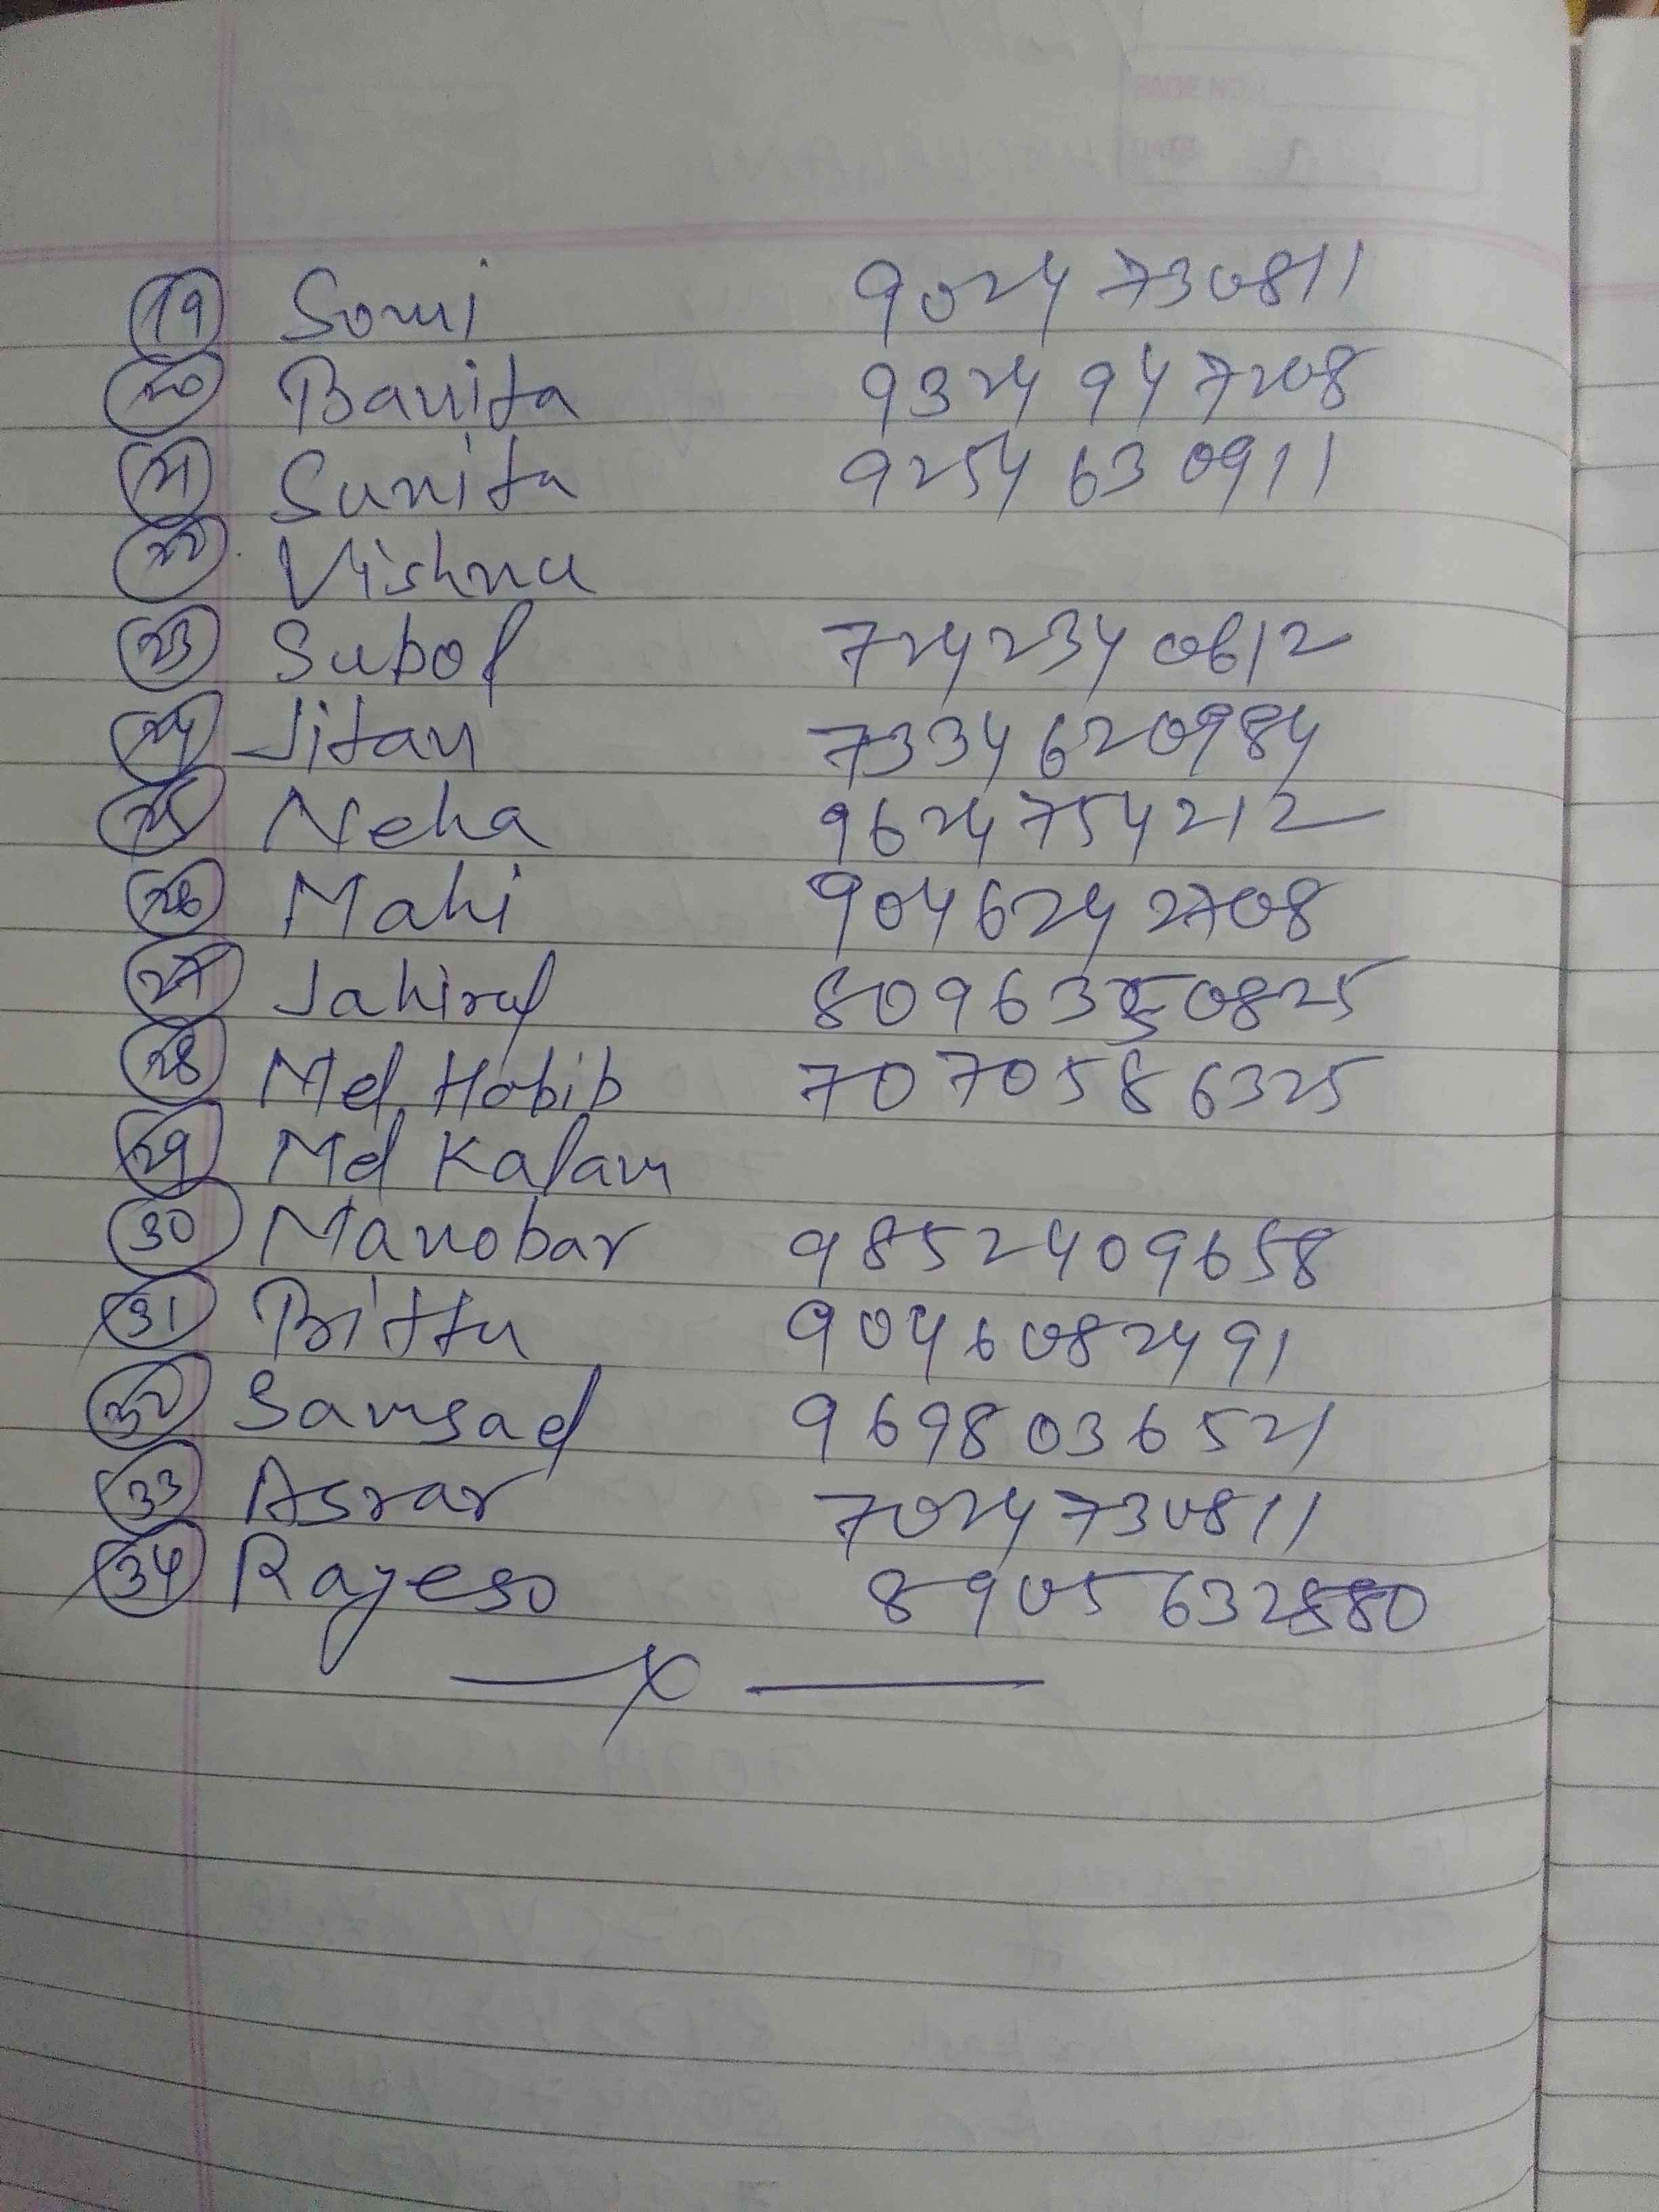 19 Soni 9024730811
20 Banita 9324947208
21 Sunita 9254630911
22 Vishnu
23 Subol 7242340612
24 Jitan 7334620984
25 Neha 9624754212
26 Mahi 9046242708
27 Jahirul 8096350825
28 Md. Habib 7070586325
29 Md Kalam
30 Manobar 9852409658
31 Bittu 9046082491
32 Samsad 9698036521
33 Asrar 7024730811
34 Rayeso 8905632880
X